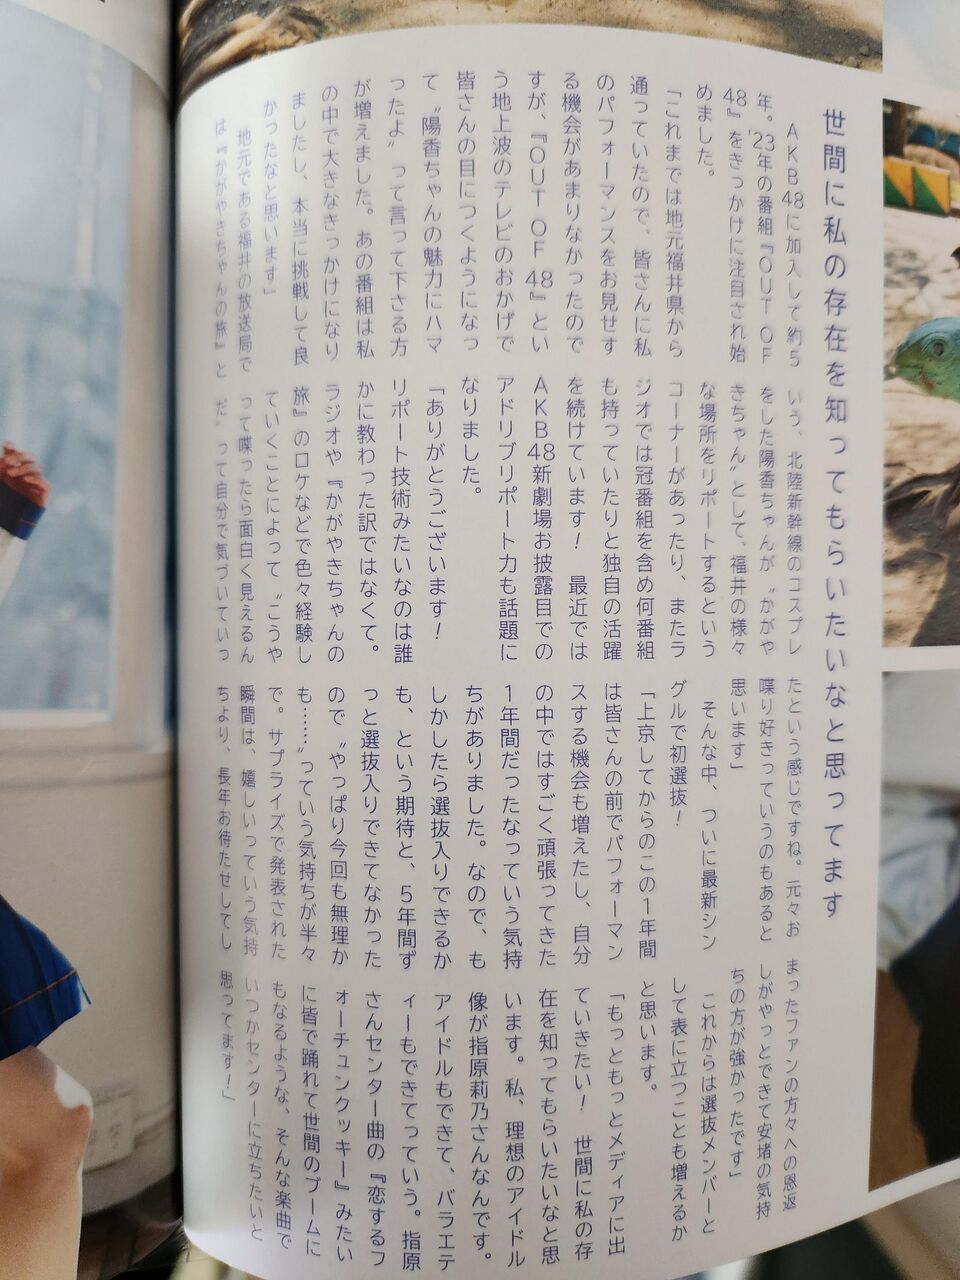 世間に私の存在を知ってもらいたいなと思ってます
AKB48に加入して約5
年。'23年の番組『OUT OF
48』をきっかけに注目され始
めました。
「これまでは地元福井県から
通っていたので、皆さんに私
のパフォーマンスをお見せす
る機会があまりなかったので
すが、『OUT OF 48』とい
う地上波のテレビのおかげで
皆さんの目につくようになっ
て〝陽香ちゃんの魅力にハマ
ったよ〟って言って下さる方
が増えました。あの番組は私
の中で大きなきっかけになり
ましたし、本当に挑戦して良
かったなと思います」
地元である福井の放送局で
は『かがやきちゃんの旅』と
いう、北陸新幹線のコスプレ
をした陽香ちゃんが〝かがや
きちゃん〟として、福井の様々
な場所をリポートするという
コーナーがあったり、またラ
ジオでは冠番組を含め何番組
も持っていたりと独自の活躍
を続けています！　最近では
AKB48新劇場お披露目での
アドリブリポート力も話題に
なりました。
「ありがとうございます！
リポート技術みたいなのは誰
かに教わった訳ではなくて。
ラジオや『かがやきちゃんの
旅』のロケなどで色々経験し
ていくことによって〝こうや
って喋ったら面白く見えるん
だ〟って自分で気づいていっ
たという感じですね。元々お
喋り好きっていうのもあると
思います」
そんな中、ついに最新シン
グルで初選抜！
「上京してからのこの1年間
は皆さんの前でパフォーマン
スする機会も増えたし、自分
の中ではすごく頑張ってきた
1年間だったなっていう気持
ちがありました。なので、も
しかしたら選抜入りできるか
も、という期待と、5年間ず
っと選抜入りできてなかった
ので〝やっぱり今回も無理か
も……〟っていう気持ちが半々
で。サプライズで発表された
瞬間は、嬉しいっていう気持
ちより、長年お待たせしてし
まったファンの方々への恩返
しがやっとできて安堵の気持
ちの方が強かったです」
これからは選抜メンバーと
して表に立つことも増えるか
と思います。
「もっともっとメディアに出
ていきたい！　世間に私の存
在を知ってもらいたいなと思
います。私、理想のアイドル
像が指原莉乃さんなんです。
アイドルもできて、バラエテ
ィーもできてっていう。指原
さんセンター曲の『恋するフ
ォーチュンクッキー』みたい
に皆で踊れて世間のブームに
もなるような、そんな楽曲で
いつかセンターに立ちたいと
思ってます！」